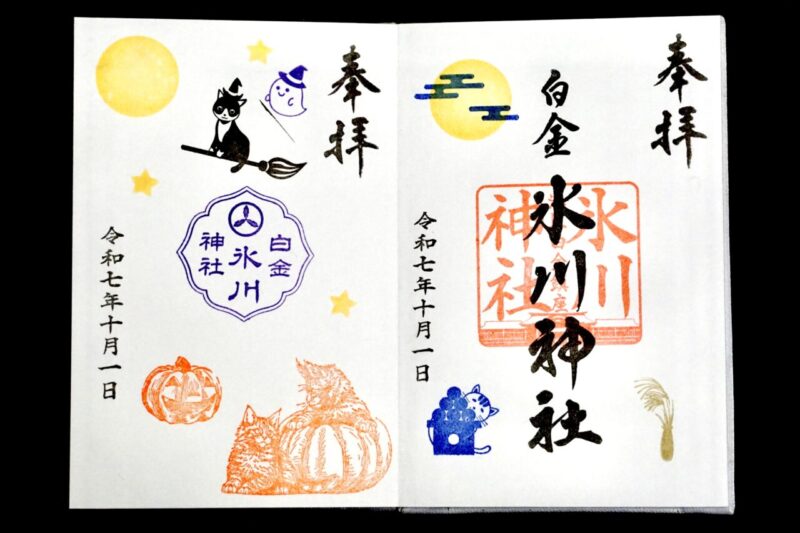 奉拝
白金
氷川神社
氷川
神社
令和七年十月一日
奉拝
白金
氷川
神社
令和七年十月一日